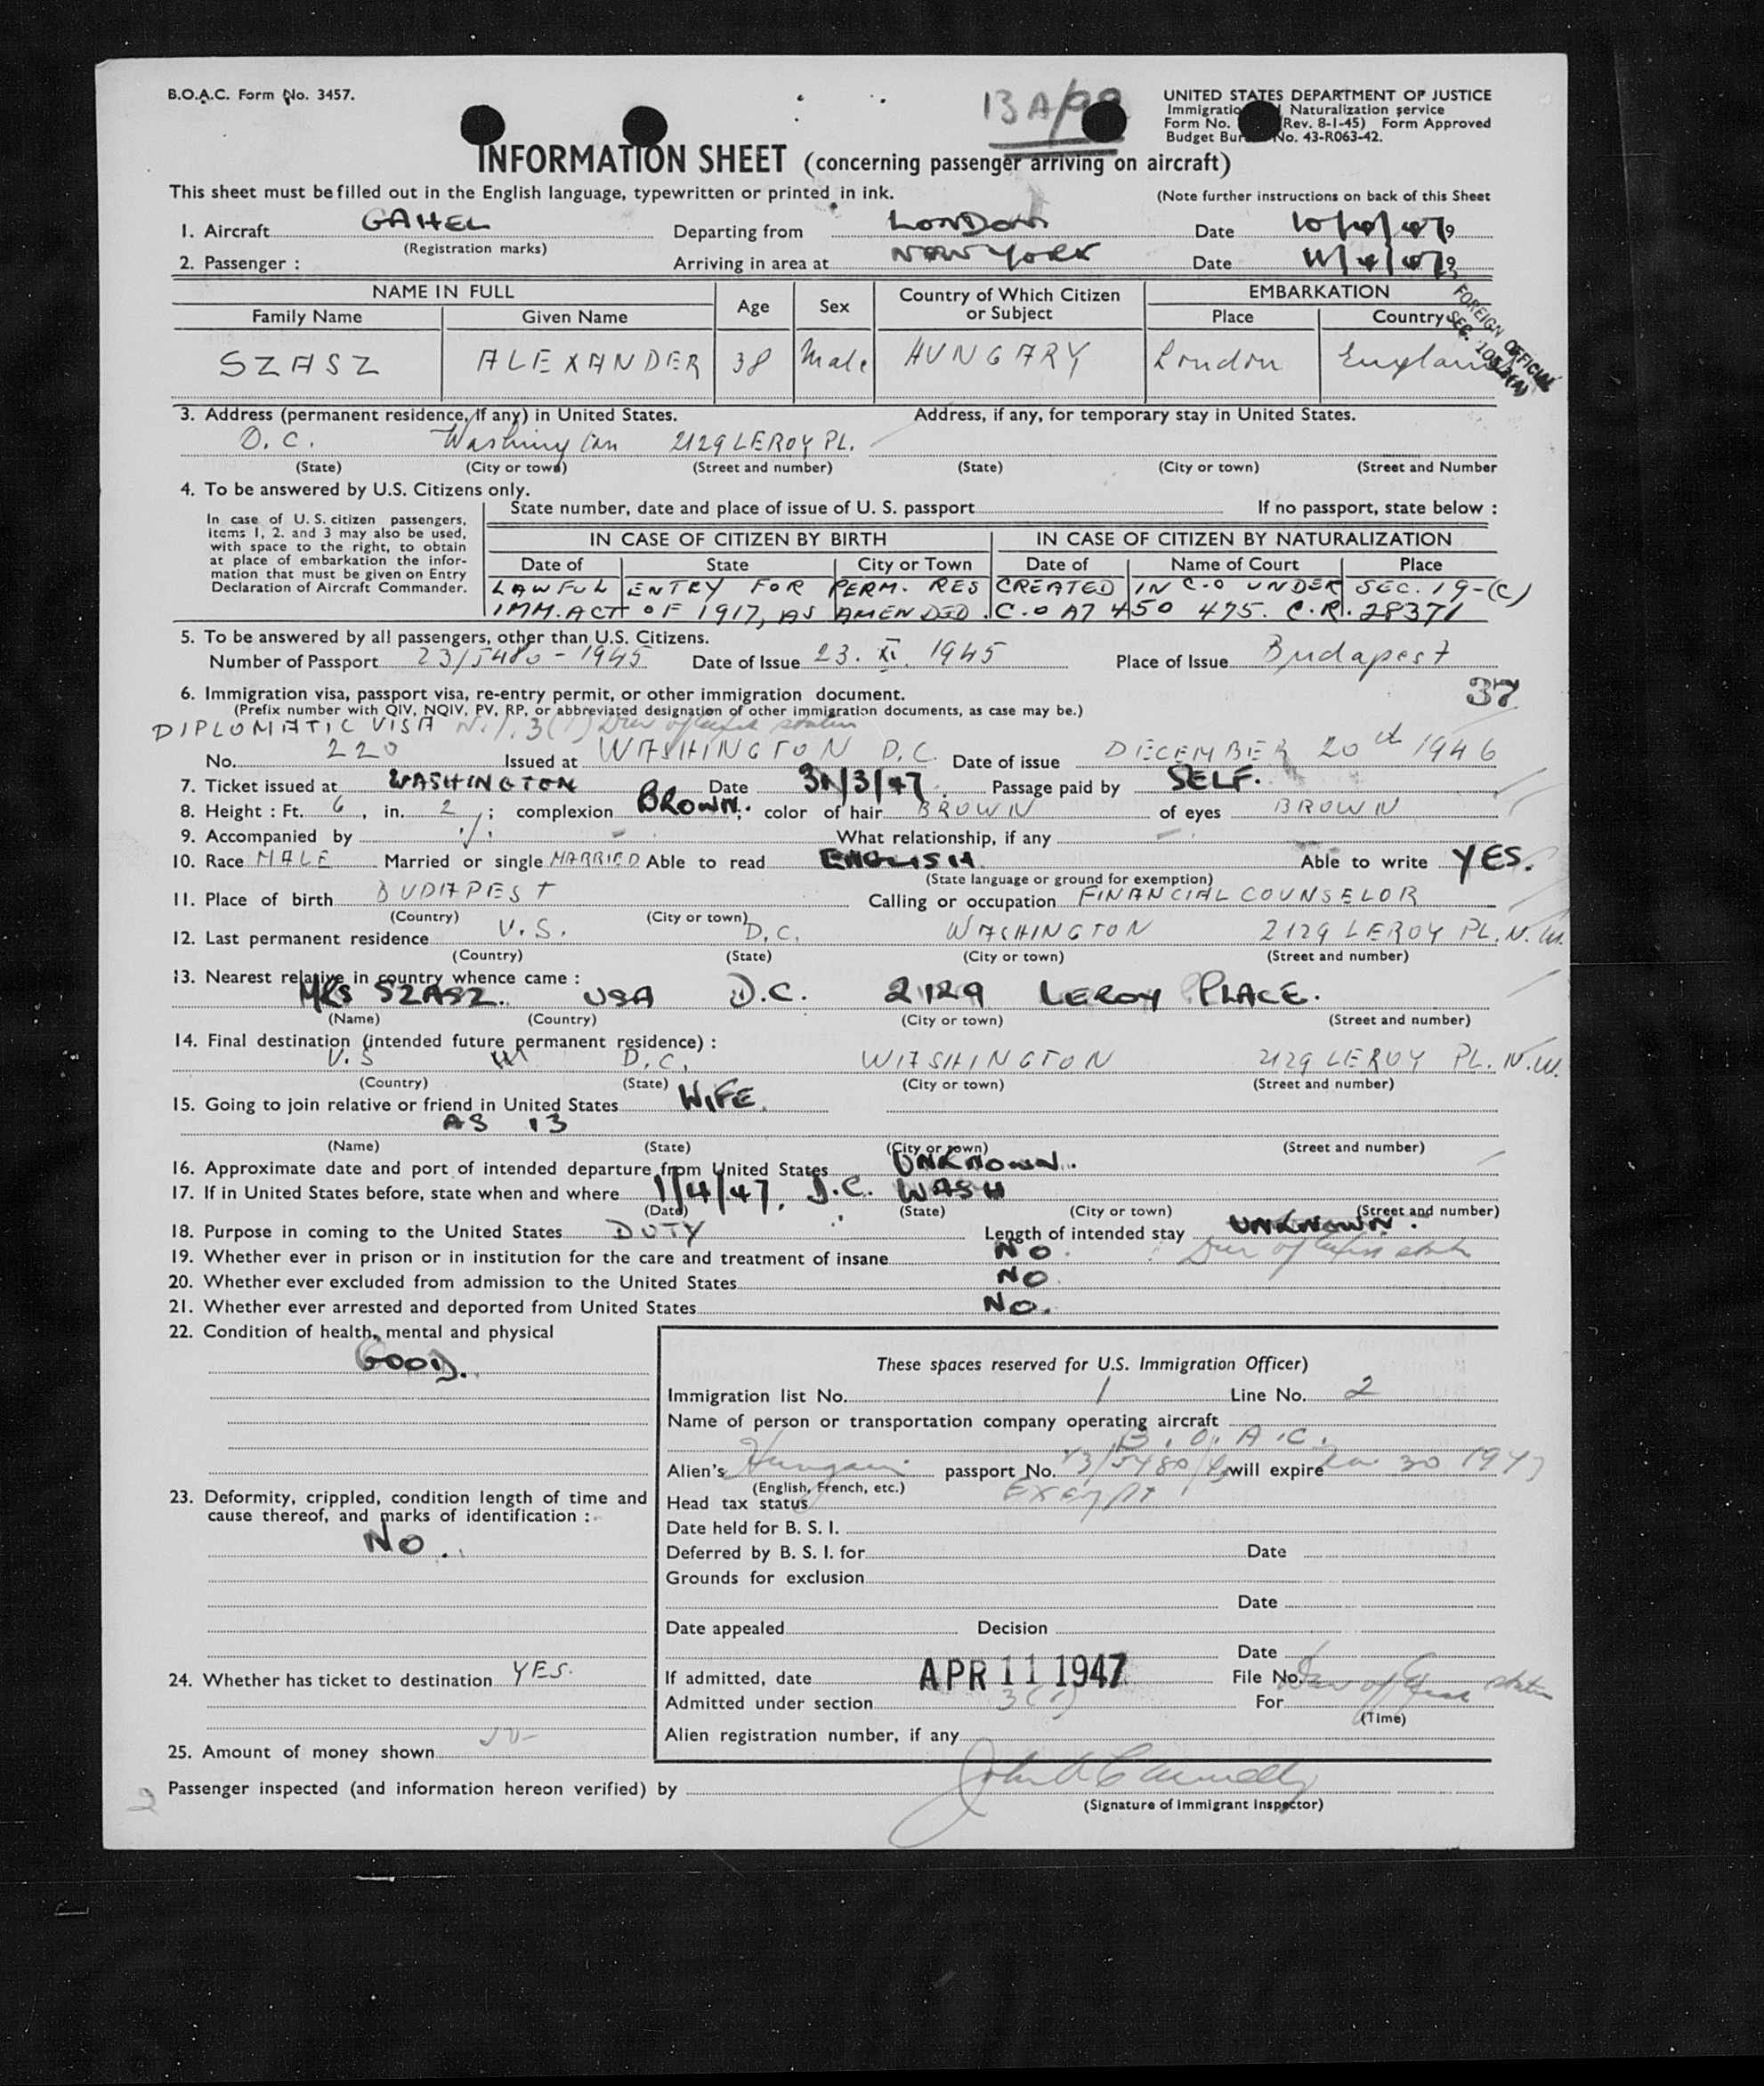 B.O.A.C. Form No. 3457.
13A/
UNITED STATES DEPARTMENT OF JUSTICE
Immigratio Naturalization service
Form No. (Rev. 8-1-45) Form Approved
Budget Bur No. 43-R063-42.
INFORMATION SHEET (concerning passenger arriving on aircraft)
This sheet must be filled out in the English language, typewritten or printed in ink. (Note further instructions on back of this Sheet
1. Aircraft GAHEL Departing from LONDON Date
(Registration marks)
2. Passenger : Arriving in area at NEW YORK Date
NAME IN FULL Age Sex Country of Which Citizen or Subject EMBARKATION
Family Name Given Name Place Country
FOREIGN OFFICIAL
SEC.
SZASZ ALEXANDER 38 Male HUNGARY London England
3. Address (permanent residence, if any) in United States. Address, if any, for temporary stay in United States.
D.C. Washington 2129 LEROY PL.
(State) (City or town) (Street and number) (State) (City or town) (Street and Number
4. To be answered by U.S. Citizens only.
State number, date and place of issue of U. S. passport If no passport, state below :
In case of U. S. citizen passengers,
items 1, 2. and 3 may also be used,
with space to the right, to obtain
at place of embarkation the infor-
mation that must be given on Entry
Declaration of Aircraft Commander.
IN CASE OF CITIZEN BY BIRTH IN CASE OF CITIZEN BY NATURALIZATION
Date of State City or Town Date of Name of Court Place
LAWFUL ENTRY FOR PERM. RES CREATED IN C.O UNDER SEC. 19-(C)
IMM. ACT OF 1917, AS AMENDED. C.O A7 450 475. C.R. 28371
5. To be answered by all passengers, other than U.S. Citizens.
Number of Passport 23/5480-1945 Date of Issue 23. XI. 1945 Place of Issue Budapest
37
6. Immigration visa, passport visa, re-entry permit, or other immigration document.
(Prefix number with QIV, NQIV, PV, RP, or abbreviated designation of other immigration documents, as case may be.)
DIPLOMATIC VISA 3(1)
No. 220 Issued at WASHINGTON D.C. Date of issue DECEMBER 20th 1946
7. Ticket issued at WASHINGTON Date 31/3/47 Passage paid by SELF.
8. Height : Ft. 6, in. 2 ; complexion BROWN. ; color of hair BROWN of eyes BROWN
9. Accompanied by ./. What relationship, if any -
10. Race MALE Married or single MARRIED Able to read ENGLISH Able to write YES.
(State language or ground for exemption)
11. Place of birth BUDAPEST Calling or occupation FINANCIAL COUNSELOR
(Country) (City or town)
12. Last permanent residence U.S. D.C. WASHINGTON 2129 LEROY PL. N.W.
(Country) (State) (City or town) (Street and number)
13. Nearest relative in country whence came :
MRS SZASZ. USA D.C. 2129 LEROY PLACE.
(Name) (Country) (City or town) (Street and number)
14. Final destination (intended future permanent residence) :
U.S D.C. WASHINGTON 2129 LEROY PL. N.W.
(Country) (State) (City or town) (Street and number)
15. Going to join relative or friend in United States WIFE.
AS 13
(Name) (State) (City or town) (Street and number)
16. Approximate date and port of intended departure from United States UNKNOWN.
17. If in United States before, state when and where 1/4/47, D.C. WASH
(Date) (State) (City or town) (Street and number)
18. Purpose in coming to the United States DUTY Length of intended stay UNKNOWN.
19. Whether ever in prison or in institution for the care and treatment of insane NO.
20. Whether ever excluded from admission to the United States NO
21. Whether ever arrested and deported from United States NO.
22. Condition of health, mental and physical
GOOD.
These spaces reserved for U.S. Immigration Officer)
Immigration list No. 1 Line No. 2
Name of person or transportation company operating aircraft
B.O.A.C.
Alien's passport No. will expire 30 1947
(English, French, etc.)
Head tax status Exempt
23. Deformity, crippled, condition length of time and
cause thereof, and marks of identification :
NO.
Date held for B. S. I.
Deferred by B. S. I. for Date
Grounds for exclusion
Date
Date appealed Decision
Date
24. Whether has ticket to destination YES.
If admitted, date APR 11 1947 File No.
Admitted under section 3(1) For
(Time)
Alien registration number, if any
25. Amount of money shown
Passenger inspected (and information hereon verified) by
(Signature of Immigrant Inspector)
2